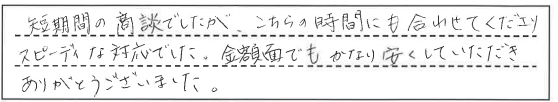 短期間の商談でしたが、こちらの時間にも合わせてくださり
スピーディな対応でした。金額面でもかなり安くしていただき
ありがとうございました。